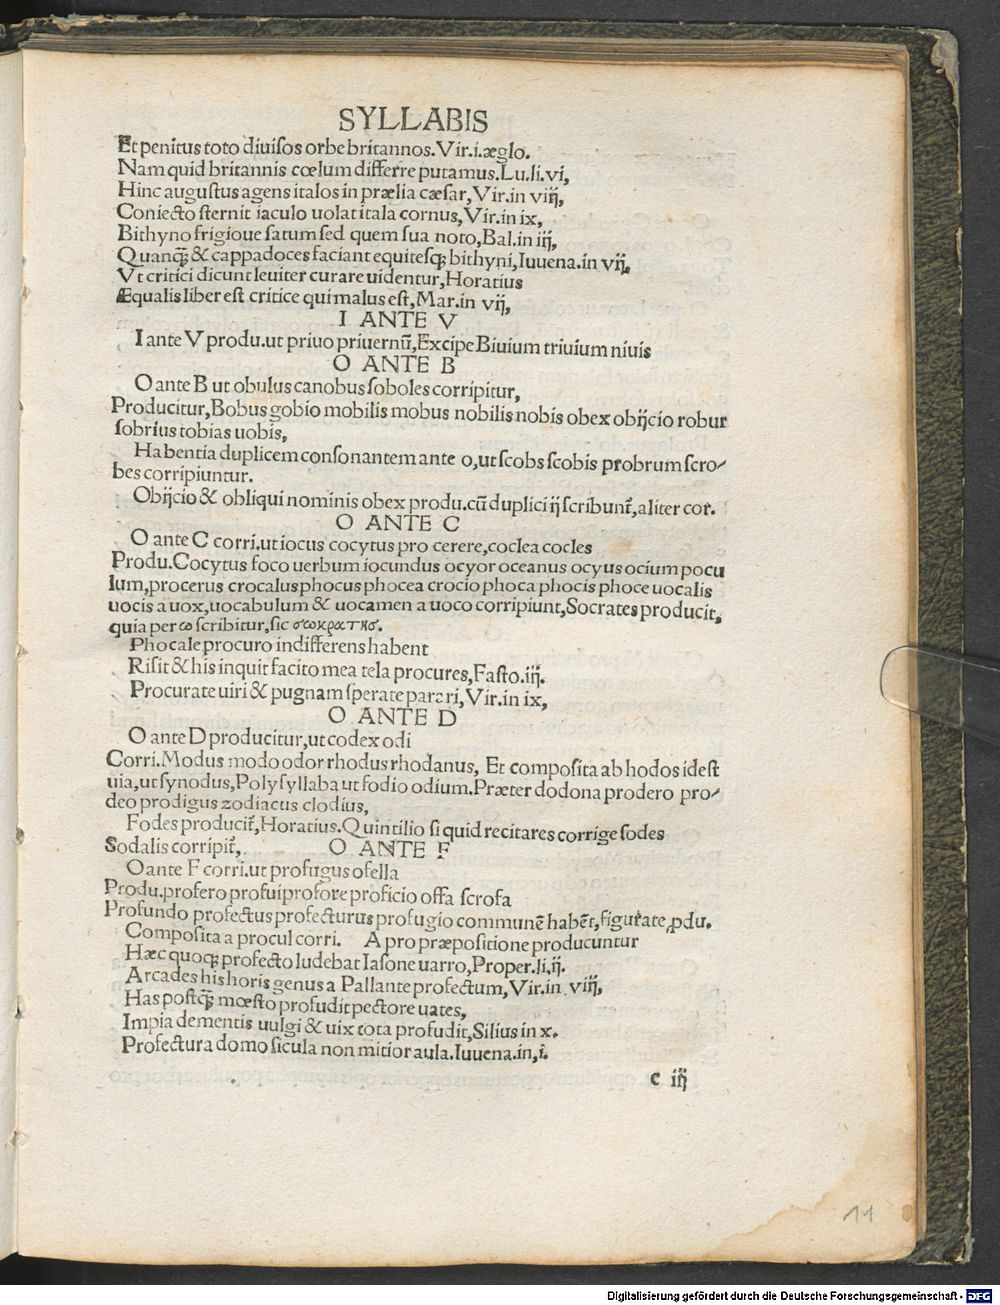 SYLLABIS
Et penitus toto diuisos orbe britannos.Vir.i.æglo.
Nam quid britannis cœlum differre putamus.Lu.li.vi,
Hinc augustus agens italos in prælia cæsar,Vir.in viij,
Coniecto sternit iaculo uolat itala cornus,Vir.in ix,
Bithyno frigioue satum sed quem sua noto,Bal.in iij,
Quanq̃ & cappadoces faciant equitesq; bithyni,Iuuena.in vij,
Vt critici dicunt leuiter curare uidentur,Horatius
Æqualis liber est critice qui malus est,Mar.in vij,
I ANTE V
I ante V produ.ut priuo priuernũ,Excipe Biuium triuium niuis
O ANTE B
O ante B ut obulus canobus soboles corripitur,
Producitur,Bobus gobio mobilis mobus nobilis nobis obex obijcio robur
sobrius tobias uobis,
Habentia duplicem consonantem ante o,ut scobs scobis probrum scro/
bes corripiuntur.
Obijcio & obliqui nominis obex produ.cũ duplici ij scribunt᷑,aliter cor᷑.
O ANTE C
O ante C corri.ut iocus cocytus pro cerere,coclea cocles
Produ.Cocytus foco uerbum iocundus ocyor oceanus ocyus ocium pocu
lum,procerus crocalus phocus phocea crocio phoca phocis phoce uocalis
uocis a uox,uocabulum & uocamen a uoco corripiunt,Socrates producit,
quia per ω scribitur,sic σωκρατησ.
Phocale procuro indifferens habent
Risit & his inquit facito mea tela procures,Fasto.iij.
Procurate uiri & pugnam sperate parari,Vir.in ix,
O ANTE D
O ante D producitur,ut codex odi
Corri.Modus modo odor rhodus rhodanus, Et composita ab hodos idest
uia,ut synodus,Polysyllaba ut fodio odium.Præter dodona prodero pro/
deo prodigus zodiacus clodius,
Fodes producit᷑,Horatius.Quintilio si quid recitares corrige sodes
Sodalis corripit᷑,
O ANTE F
O ante F corri.ut profugus ofella
Produ.profero profui profore proficio offa scrofa
Profundo profectus profecturus profugio communẽ habẽt,figurate ꝓdu.
Composita a procul corri. A pro præpositione producuntur
Hæc quoq; profecto ludebat Iasone uarro,Proper.li,ij.
Arcades his horis genus a Pallante profectum,Vir.in viij,
Has postq̃ mœsto profudit pectore uates,
Impia dementis uulgi & uix tota profudit,Silius in x.
Profectura domo sicula non mitior aula.Iuuena.in,i.
c iij
11
Digitalisierung gefördert durch die Deutsche Forschungsgemeinschaft - DFG